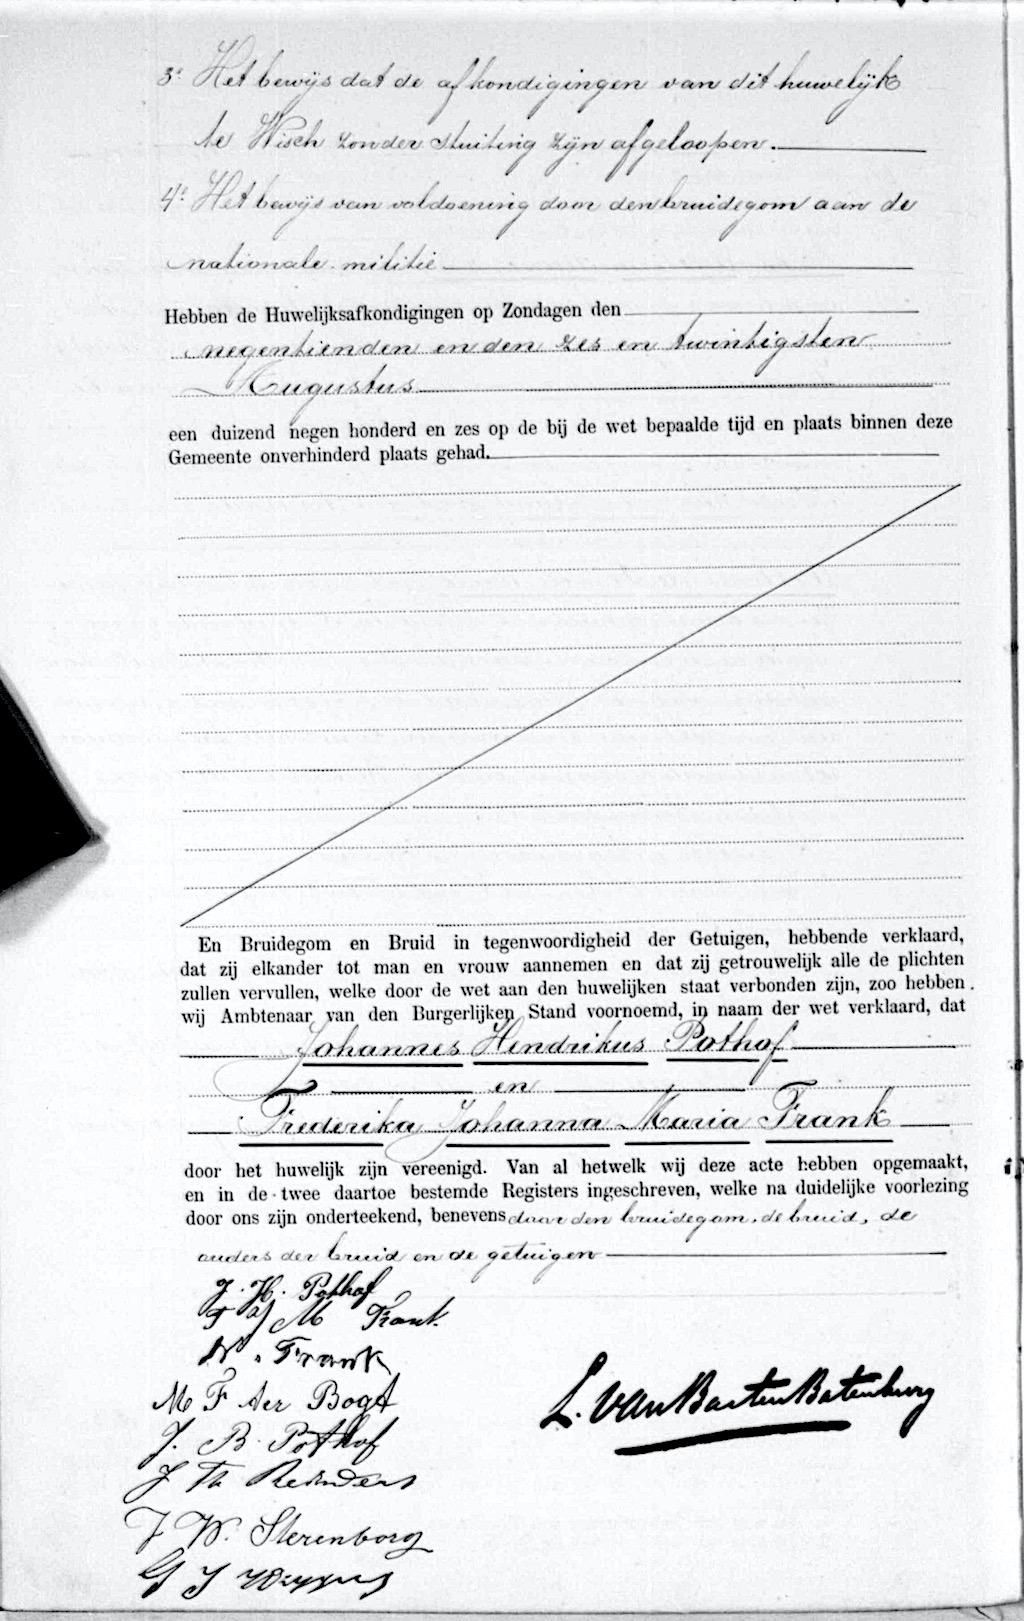 3° Het bewijs dat de afkondigingen van dit huwelijk
te Wisch zonder stuiting zijn afgeloopen.
4° Het bewijs van voldoening door den bruidegom aan de
nationale militie
Hebben de Huwelijksafkondigingen op Zondagen den
negentienden en den zes en twintigsten
Augustus
een duizend negen honderd en zes op de bij de wet bepaalde tijd en plaats binnen deze
Gemeente onverhinderd plaats gehad.
En Bruidegom en Bruid in tegenwoordigheid der Getuigen, hebbende verklaard,
dat zij elkander tot man en vrouw aannemen en dat zij getrouwelijk alle de plichten
zullen vervullen, welke door de wet aan den huwelijken staat verbonden zijn, zoo hebben
wij Ambtenaar van den Burgerlijken Stand voornoemd, in naam der wet verklaard, dat
Johannes Hendrikus Pothof
en
Frederika Johanna Maria Frank
door het huwelijk zijn vereenigd. Van al hetwelk wij deze acte hebben opgemaakt,
en in de twee daartoe bestemde Registers ingeschreven, welke na duidelijke voorlezing
door ons zijn onderteekend, benevens door den bruidegom, de bruid, de
ouders der bruid en de getuigen
J. H. Pothof
F J M Frank.
W. Frank
M F ter Bogt
L. van Basten Batenburg
J. B. Pothof
J Th Reinders
J W. Sterenborg
G J